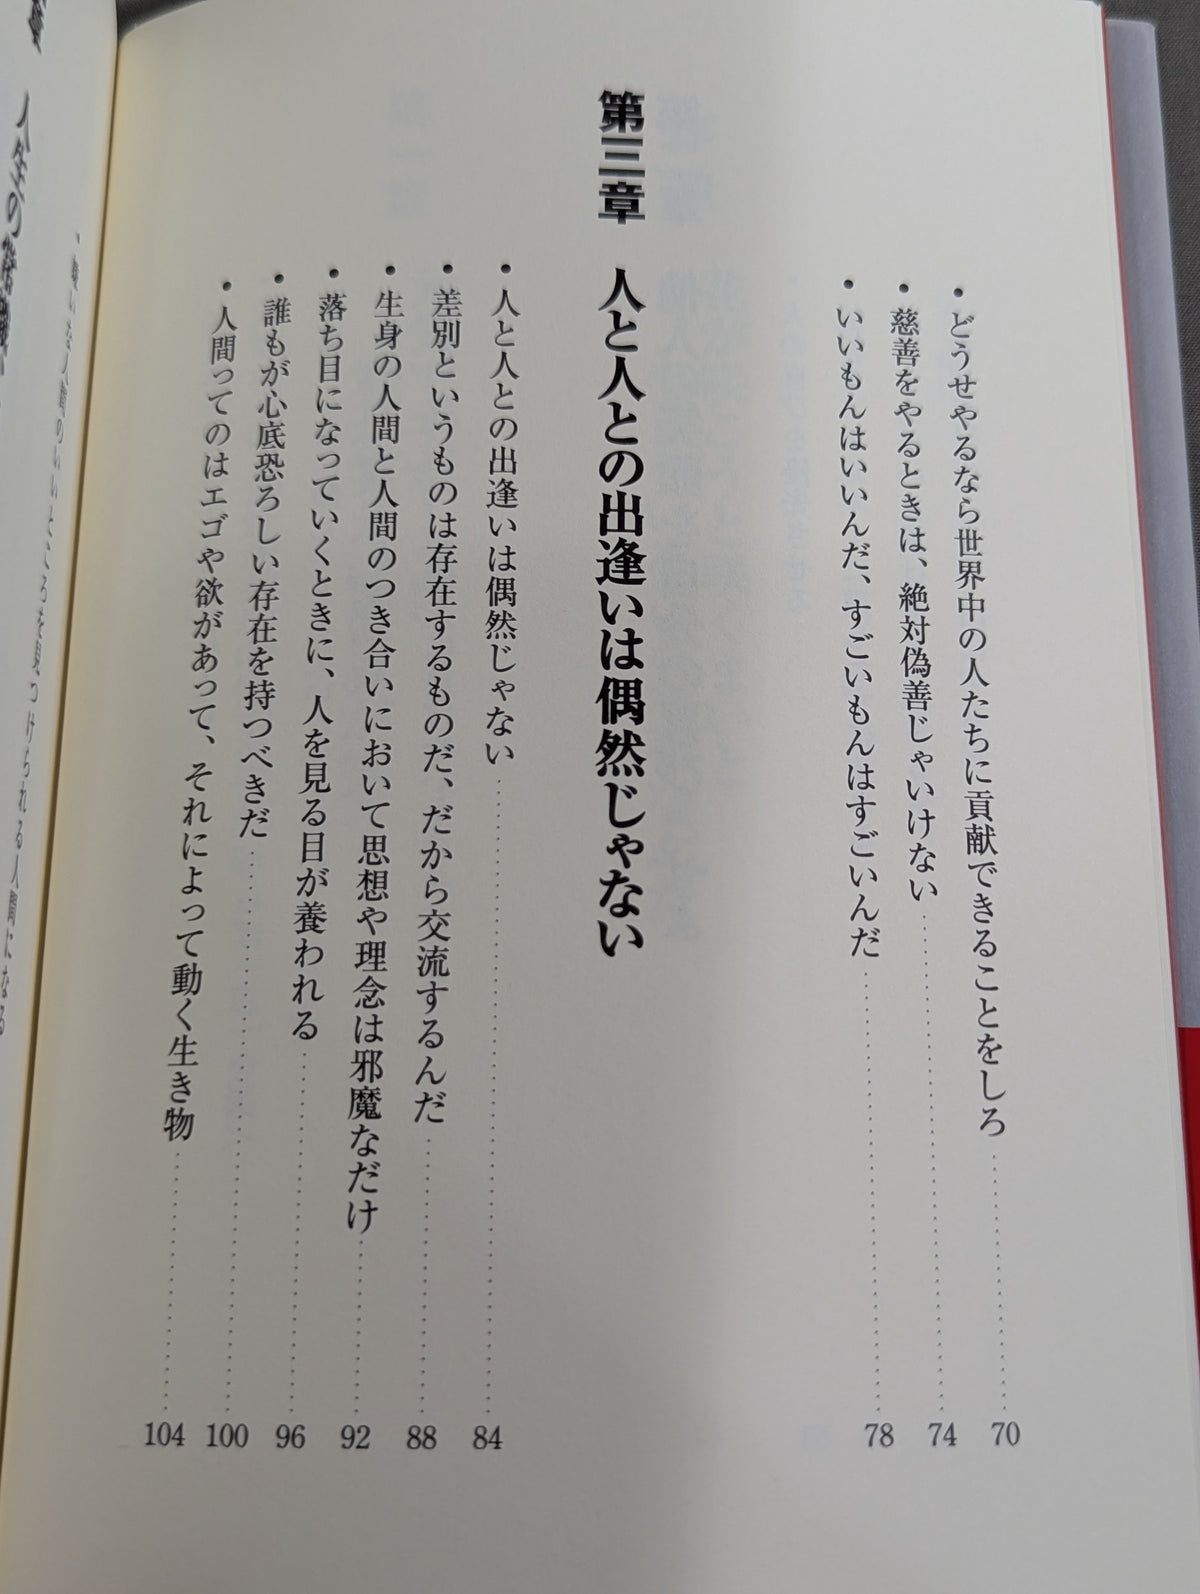 ・どうせやるなら世界中の人たちに貢献できることをしろ……70
・慈善をやるときは、絶対偽善じゃいけない……74
・いいもんはいいんだ、すごいもんはすごいんだ……78
第三章 人と人との出逢いは偶然じゃない
・人と人との出逢いは偶然じゃない……84
・差別というものは存在するものだ、だから交流するんだ……88
・生身の人間と人間のつき合いにおいて思想や理念は邪魔なだけ……92
・落ち目になっていくときに、人を見る目が養われる……96
・誰もが心底恐ろしい存在を持つべきだ……100
・人間ってのはエゴや欲があって、それによって動く生き物……104
章 人生の
人間のいいところを見つけられる人間になる